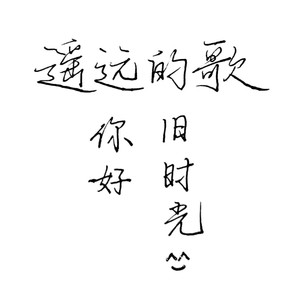 遥远的歌
你好
旧时光
^^